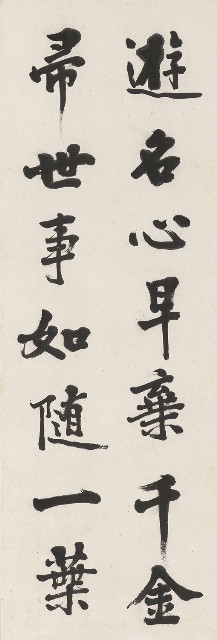 遊名心早棄千金
帚世事如随一葉